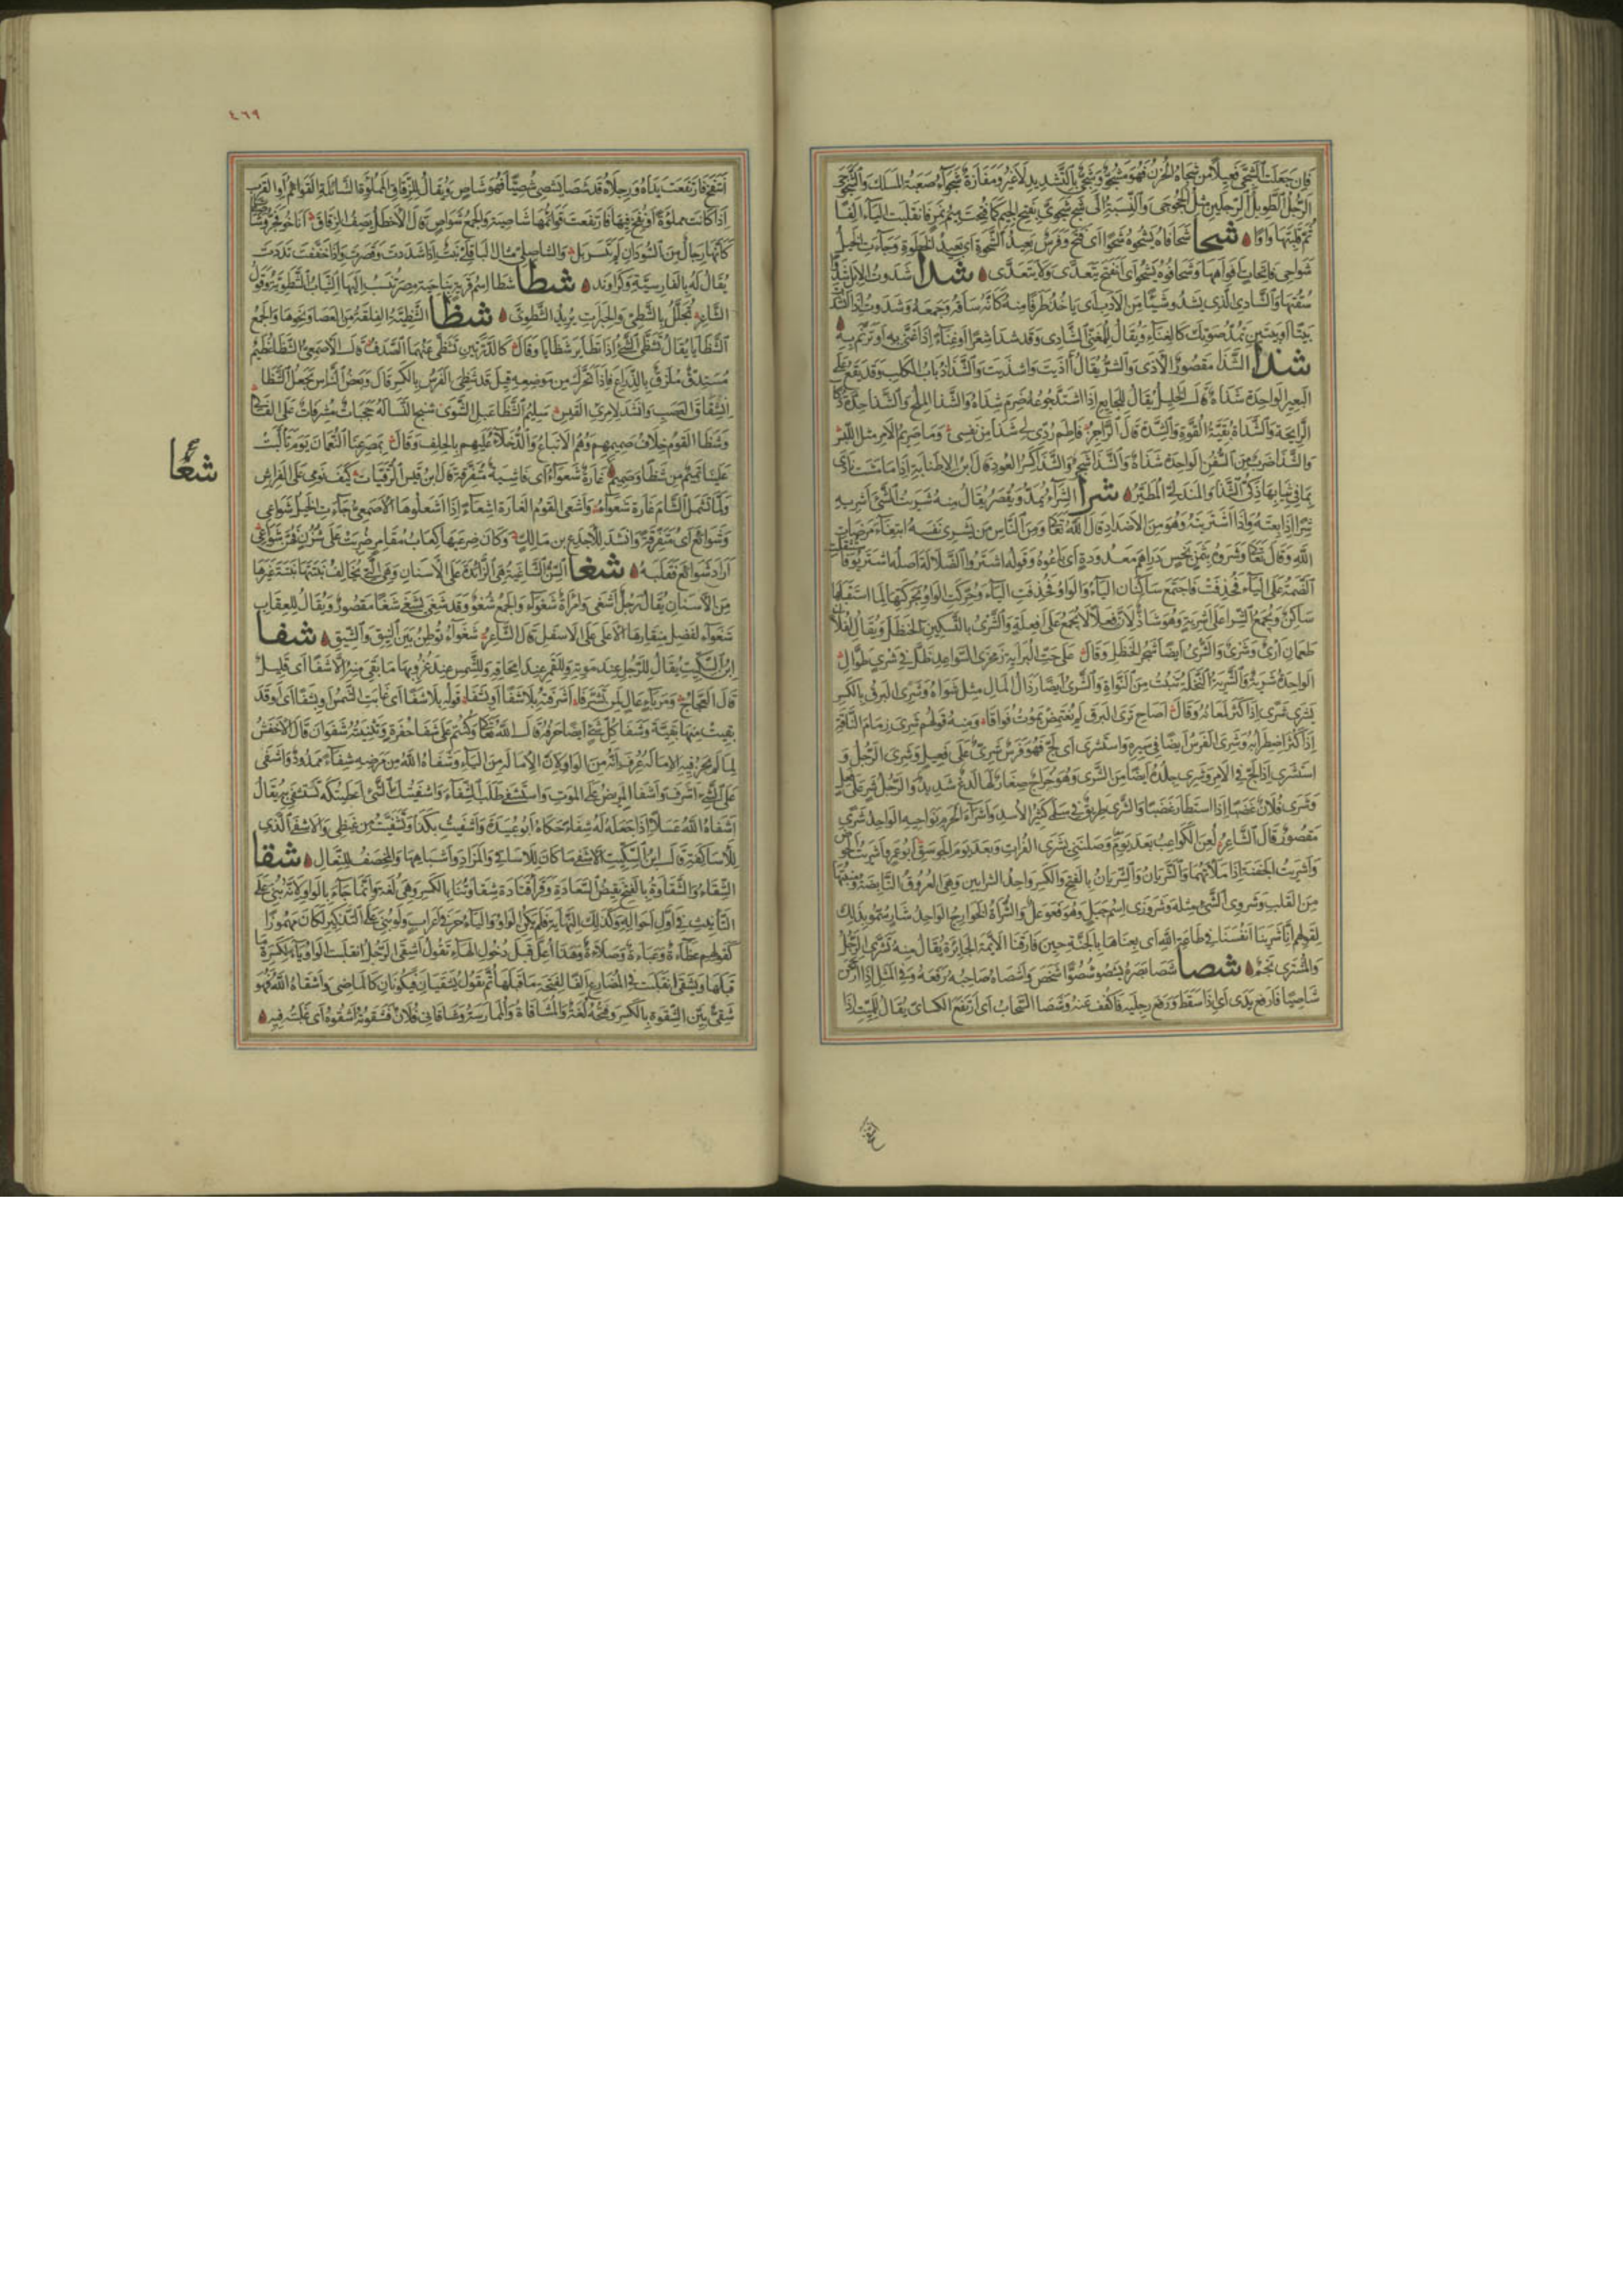 فَإن جَعَلتَ الشَّجِيَ فَعِيلًا مِن شَجَاهُ الحُزنُ فَهُوَ مَشجُوٌّ وَشَجِيٌّ بِالتَّشدِيدِ لَا غَيرُ وَمَفَازَةٌ شَجوَاءُ صَعبَةُ المَسلَكِ وَالشَّجَوجَى
الرَّجُلُ الطَّوِيلُ الرِّجلَينِ مِثلُ الخَجَوجَى وَالنِّسبَةُ إلَى شَجٍ شَجَوِيٌّ بِفَتحِ الجِيمِ كَمَا فُتِحَت مِيمُ نَمِرٍ فَانقَلَبَتِ اليَاءُ ألِفًا
ثُمَّ قَلَبتَهَا وَاوًا شحا شَحَا فَاهُ يَشحُوهُ شَحوًا أى فَتَحَ وَفَرَسٌ بَعِيدُ الشَّحوَةِ أى بَعِيدُ الخَطوَةِ وَجَاءَتِ الخَيلُ
شَوَاحِيَ فَاتِحَاتٍ أفوَاهَهَا وَشَحَا فُوهُ يَشحُو أى انفَتَحَ يَتَعَدَّى وَلَا يَتَعَدَّى شدا شَدَوتُ الإبِلَ شَدوًا
سُقتُهَا وَالشَّادِى الَّذِى يَشدُو شَيئًا مِنَ الأدَبِ أى يَأخُذُ طَرَفًا مِنهُ كَأنَّهُ سَاقَهُ وَجَمَعَهُ وَشَدَوتُ إذَا أنشَدتَ
بَيتًا أو بَيتَينِ تَمُدُّ صَوتَكَ كَالغِنَاءِ وَيُقَالُ لِلمُغَنِّى الشَّادِى وَقَد شَدَا شِعرًا أو غِنَاءً إذَا غَنَّى بِهِ أو تَرَنَّمَ بِهِ
شذا الشَّذَا مَقصُورٌ الأذَى وَالشَّرُّ يُقَالُ أذَيتَ وَأشذَيتَ وَالشَّذَا ذُبَابُ الكَلبِ وَقَد يَقَعُ عَلَى
البَعِيرِ الوَاحِدَةُ شَذَاةٌ قَالَ الخَلِيلُ يُقَالُ لِلجَائِعِ إذَا اشتَدَّ جُوعُهُ ضَرِمَ شَذَاهُ وَالشَّذَا المِلحُ وَالشَّذَا حِدَّةُ ذَكَاءِ
الرَّائِحَةِ وَالشَّذَاةُ بَقِيَّةُ القُوَّةِ وَالشِّدَّةِ قَالَ الرَّاجِزُ فَاطِمَ رُدِّى لِى شَذًا مِن نَفسِى وَمَا صَرِيمُ الأمرِ مِثلُ اللَّبسِ
وَالشَّذَا ضَربٌ مِنَ السُّفُنِ الوَاحِدَةُ شَذَاةٌ وَالشَّذَا شَجَرٌ وَالشَّذَا كِسَرُ العُودِ قَالَ ابنُ الإطنَابَةِ إذَا مَا مَشَت نَادَى
بِمَا فِى ثِيَابِهَا ذَكِىُّ الشَّذَا وَالمَندَلِىُّ المُطَيَّرُ شرا الشِّرَاءُ يُمَدُّ وَيُقصَرُ يُقَالُ مِنهُ شَرَيتُ الشَّىءَ أشرِيهِ
شِرًا إذَا بِعتَهُ وَإذَا اشتَرَيتَهُ وَهُوَ مِنَ الأضدَادِ قَالَ اللَّهُ تَعَالَى وَمِنَ النَّاسِ مَن يَشرِى نَفسَهُ ابتِغَاءَ مَرضَاتِ
اللَّهِ وَقَالَ تَعَالَى وَشَرَوهُ بِثَمَنٍ بَخسٍ دَرَاهِمَ مَعدُودَةٍ أى بَاعُوهُ وَقَولُهُ اشتَرَوُا الضَّلَالَةَ أصلُهُ اشتَرَيُوا فَاستُثقِلَتِ
الضَّمَّةُ عَلَى اليَاءِ فَحُذِفَت فَاجتَمَعَ سَاكِنَانِ اليَاءُ وَالوَاوُ فَحُذِفَتِ اليَاءُ وَحُرِّكَتِ الوَاوُ بِحَرَكَتِهَا لَمَّا استَقبَلَهَا
سَاكِنٌ وَيُجمَعُ الشِّرَا عَلَى أشرِيَةٍ وَهُوَ شَاذٌّ لِأنَّ فَعَلًا لَا يُجمَعُ عَلَى أفعِلَةٍ وَالشَّرىُ بِالتَّسكِينِ الحَنظَلُ وَيُقَالُ لِفُلَانٍ
طَعمَانِ أرىٌ وَشَرىٌ وَالشَّرىُ أيضًا شَجَرُ الحَنظَلِ وَقَالَ عَلَى حَتِّ البُرَايَةِ زَمخَرِىِّ السَّوَاعِدِ ظَلَّ فِى شَرىٍ طِوَالِ
الوَاحِدَةُ شَريَةٌ وَالشَّريَةُ النَّخلَةُ تَنبُتُ مِنَ النَّوَاةِ وَالشَّرَى أيضًا رُذَالُ المَالِ مِثلُ شَوَاهُ وَشَرِىَ البَرقُ بِالكَسرِ
يَشرَى شَرًى إذَا كَثُرَ لَمَعَانُهُ وَقَالَ أصَاحِ تَرَى البَرقَ لَم يَغتَمِض يَمُوتُ فُوَاقًا وَمِنهُ قَولُهُم شَرِىَ زِمَامُ النَّاقَةِ
إذَا كَثُرَ اضطِرَابُهُ وَشَرِىَ الفَرَسُ أيضًا فِى سَيرِهِ وَاستَشرَى أى لَجَّ فَهُوَ فَرَسٌ شَرِىٌّ عَلَى فَعِيلٍ وَشَرِىَ الرَّجُلُ وَ
استَشرَى إذَا لَجَّ فِى الأمرِ وَشَرِىَ جِلدُهُ أيضًا مِنَ الشَّرَى وَهُوَ خُرَاجٌ صِغَارٌ لَهَا لَذعٌ شَدِيدٌ وَالرَّجُلُ شَرٍ عَلَى فَعِلٍ
وَشَرِىَ فُلَانٌ غَضَبًا إذَا استَطَارَ غَضَبًا وَالشَّرَى طَرِيقٌ فِى سَلمَى كَثِيرُ الأُسدِ وَأشرَاءُ الحَرَمِ نَوَاحِيهِ الوَاحِدُ شَرًى
مَقصُورٌ قَالَ الشَّاعِرُ لُعِنَ الكَوَاعِبُ بَعدَ يَومَ وَصَلنَنِى بِشَرَى الفُرَاتِ وَبَعدَ يَومِ الجَوسَقِ أبُو عَمرٍو أشرَيتُ الحَوضَ
وَأشرَيتُ الجَفنَةَ إذَا مَلَأتَهُمَا وَالشَّريَانُ وَالشِّريَانُ بِالفَتحِ وَالكَسرِ وَاحِدُ الشَّرَايِينِ وَهِىَ العُرُوقُ النَّابِضَةُ وَمَنبِتُهَا
مِنَ القَلبِ وَشَروَى الشَّىءِ مِثلُهُ وَشَرَورَى اسمُ جَبَلٍ وَهُوَ فَعَوعَلٌ وَالشُّرَاةُ الخَوَارِجُ الوَاحِدُ شَارٍ سُمُّوا بِذَلِكَ
لِقَولِهِم إنَّا شَرَينَا أنفُسَنَا فِى طَاعَةِ اللَّهِ أى بِعنَاهَا بِالجَنَّةِ حِينَ فَارَقنَا الأئِمَّةَ الجَائِرَةَ يُقَالُ مِنهُ تَشَرَّى الرَّجُلُ
وَالمُشتَرِى نَجمٌ شصا شَصَا بَصَرُهُ يَشصُو شُصُوًّا شَخَصَ وَأشصَاهُ صَاحِبُهُ رَفَعَهُ وَفِى المَثَلِ إذَا ارجَحَنَّ
شَاصِيًا فَارفَع يَدَا أى إذَا سَقَطَ وَرَفَعَ رِجلَيهِ فَاكفُف عَنهُ وَشَصَا السَّحَابُ أى ارتَفَعَ الكسائى يُقَالُ لِلمَيِّتِ إذَا
٤٦٩
انتَفَخَ فَارتَفَعَت يَدَاهُ وَرِجلَاهُ قَد شَصَا يَشصِى شُصِيًّا فَهُوَ شَاصٍ وَيُقَالُ لِلزِّقَاقِ المَملُوَّةِ الشَّائِلَةِ القَوَائِمِ أوِ القِرَبِ
إذَا كَانَت مَملُوَّةً أو نُفِخَ فِيهَا فَارتَفَعَت قَوَائِمُهَا شَاصِيَةٌ وَالجَمعُ شَوَاصٍ قَالَ الأخطَلُ يَصِفُ الزِّقَاقَ أنَاخُوا فَجَرُّوا شَاصِيَاتٍ
كَأنَّهَا رِجَالٌ مِنَ السُّودَانِ لَم يَتَسَربَلِ وَالشَّاصِلَّى مِثَالُ البَاقِلَّى نَبتٌ إذَا شَدَّدتَ قَصَرتَ وَإذَا خَفَّفتَ مَدَدتَ
يُقَالُ لَهُ بِالفَارِسِيَّةِ وَكرَاوَند شطا شَطَا اسمُ قَريَةٍ بِنَاحِيَةِ مِصرَ تُنسَبُ إلَيهَا الثِّيَابُ الشَّطَوِيَّةُ وَقَولُ
الشَّاعِرِ تَجَلَّلَ بِالشَّطِىِّ وَالحِبَرَاتِ يُرِيدُ الشَّطَوِىَّ شظا الشَّظِيَّةُ الفِلقَةُ مِنَ العَصَا وَنَحوِهَا وَالجَمعُ
الشَّظَايَا يُقَالُ تَشَظَّى الشَّىءُ إذَا تَطَايَرَ شَظَايَا وَقَالَ كَالدُّرَّتَينِ تَشَظَّى عَنهُمَا الصَّدَفُ قَالَ الأصمَعِىُّ الشَّظَا عُظَيمٌ
مُستَدِقٌّ مُلزَقٌ بِالذِّرَاعِ فَإذَا تَحَرَّكَ مِن مَوضِعِهِ قِيلَ قَد شَظِىَ الفَرَسُ بِالكَسرِ قَالَ وَبَعضُ النَّاسِ يَجعَلُ الشَّظَا
انشِقَاقَ العَصَبِ وَأنشَدَ لِامرِئِ القَيسِ سَلِيمُ الشَّظَا عَبلُ الشَّوَى شَنِجُ النَّسَا لَهُ حَجَبَاتٌ مُشرِفَاتٌ عَلَى الفَالِ
وَشَظَا القَومِ خِلَافُ صَمِيمِهِم وَهُمُ الأتبَاعُ وَالدُّخَلَاءُ عَلَيهِم بِالحِلفِ وَقَالَ بِمَصرَعِنَا النُّعمَانَ يَومَ تَألَّبَت
عَلَينَا تَمِيمٌ مِن شَظًا وَصَمِيمِ غَارَةٌ شَعوَاءُ أى فَاشِيَةٌ مُتَفَرِّقَةٌ قَالَ ابنُ قَيسِ الرُّقَيَّاتِ كَيفَ نَومِى عَلَى الفِرَاشِ
شعًا
وَلَمَّا تَشمَلِ الشَّامَ غَارَةٌ شَعوَاءُ وَأشعَى القَومُ الغَارَةَ إشعَاءً إذَا أشعَلُوهَا الأصمَعِىُّ جَاءَتِ الخَيلُ شَوَاعِىَ
وَشَوَائِعَ أى مُتَفَرِّقَةً وَأنشَدَ لِلأجدَعِ بنِ مَالِكٍ وَكَأنَّ صَرعَيهَا كِعَابُ مُقَامِرٍ ضُرِبَت عَلَى شُزُنٍ فَهُنَّ شَوَاعِى
أرَادَ شَوَائِعَ فَقَلَبَهُ شغا السِّنُّ الشَّاغِيَةُ هِىَ الزَّائِدَةُ عَلَى الأسنَانِ وَهِىَ الَّتِى تُخَالِفُ نِبتَتُهَا نِبتَةَ غَيرِهَا
مِنَ الأسنَانِ يُقَالُ رَجُلٌ أشغَى وَامرَأةٌ شَغوَاءُ وَالجَمعُ شُغوٌ وَقَد شَغِىَ يَشغَى شَغًا مَقصُورٌ وَيُقَالُ لِلعُقَابِ
شَغوَاءُ لِفَضلِ مِنقَارِهَا الأعلَى عَلَى الأسفَلِ قَالَ الشَّاعِرُ شَغوَاءُ تُوطِنُ بَينَ الشِّيقِ وَالنِّيقِ شفا
ابنُ السِّكِّيتِ يُقَالُ لِلرَّجُلِ عِندَ مَوتِهِ وَلِلقَمَرِ عِندَ امِّحَاقِهِ وَلِلشَّمسِ عِندَ غُرُوبِهَا مَا بَقِىَ مِنهُ إلَّا شَفًا أى قَلِيلٌ
قَالَ العَجَّاجُ وَمَربَإٍ عَالٍ لِمَن تَشَرَّفَا أشرَفتُهُ بِلَا شَفًا أو بِشَفَا قَولُهُ بِلَا شَفًا أى غَابَتِ الشَّمسُ أو بِشَفًا أى أو قَد
بَقِيَت مِنهَا بَقِيَّةٌ وَشَفَا كُلِّ شَىءٍ أيضًا حَرفُهُ قَالَ اللَّهُ تَعَالَى وَكُنتُم عَلَى شَفَا حُفرَةٍ وَتَثنِيَتُهُ شَفَوَانِ قَالَ الأخفَشُ
لَمَّا لَم تَجُز فِيهِ الإمَالَةُ عُرِفَ أنَّهُ مِنَ الوَاوِ لِأنَّ الإمَالَةَ مِنَ اليَاءِ وَشَفَاهُ اللَّهُ مِن مَرَضِهِ شِفَاءً مَمدُودٌ وَأشفَى
عَلَى الشَّىءِ أشرَفَ وَأشفَا المَرِيضُ عَلَى المَوتِ وَاستَشفَى طَلَبَ الشِّفَاءَ وَأشفَيتُكَ الشَّىءَ أعطَيتُكَهُ تَستَشفِى بِهِ يُقَالُ
أشفَاهُ اللَّهُ عَسَلًا إذَا جَعَلَهُ لَهُ شِفَاءً حَكَاهُ أبُو عُبَيدَةَ وَأشفَيتُ بِكَذَا وَتَشَفَّيتُ مِن غَيظِى وَالإشفَى الَّذِى
لِلأسَاكِفَةِ قَالَ ابنُ السِّكِّيتِ الإشفَى مَا كَانَ لِلأسَاقِى وَالمَزَادِ وَأشبَاهِهَا وَالمِخصَفُ لِلنِّعَالِ شقا
الشَّقَاءُ وَالشَّقَاوَةُ بِالفَتحِ نَقِيضُ السَّعَادَةِ وَقَرَأ قَتَادَةُ شِقَاوَتُنَا بِالكَسرِ وَهِىَ لُغَةٌ وَإنَّمَا جَاءَ بِالوَاوِ لِأنَّهُ بُنِىَ عَلَى
التَّأنِيثِ فِى أوَّلِ أحوَالِهِ وَكَذَلِكَ النِّهَايَةُ فَلَم تَكُنِ الوَاوُ وَاليَاءُ حَرفَى إعرَابٍ وَلَو بُنِىَ عَلَى التَّذكِيرِ لَكَانَ مَهمُوزًا
كَقَولِهِم عَظَاءَةٌ وَعَبَاءَةٌ وَصَلَاءَةٌ وَهَذَا أُعِلَّ قَبلَ دُخُولِ الهَاءِ تَقُولُ شَقِىَ الرَّجُلُ انقَلَبَتِ الوَاوُ يَاءً لِكَسرَةِ مَا
قَبلَهَا وَيَشقَى انقَلَبَت فِى المُضَارِعِ ألِفًا لِفَتحَةِ مَا قَبلَهَا ثُمَّ تَقُولُ يَشقَيَانِ فَيَكُونَانِ كَالمَاضِى وَأشقَاهُ اللَّهُ فَهُوَ
شَقِىٌّ بَيِّنُ الشِّقوَةِ بِالكَسرِ وَفَتحُهُ لُغَةٌ وَالمُشَاقَاةُ المُمَارَسَةُ وَشَاقَانِى فُلَانٌ فَشَقَوتُهُ أشقُوهُ أى غَلَبتُهُ فِيهِ